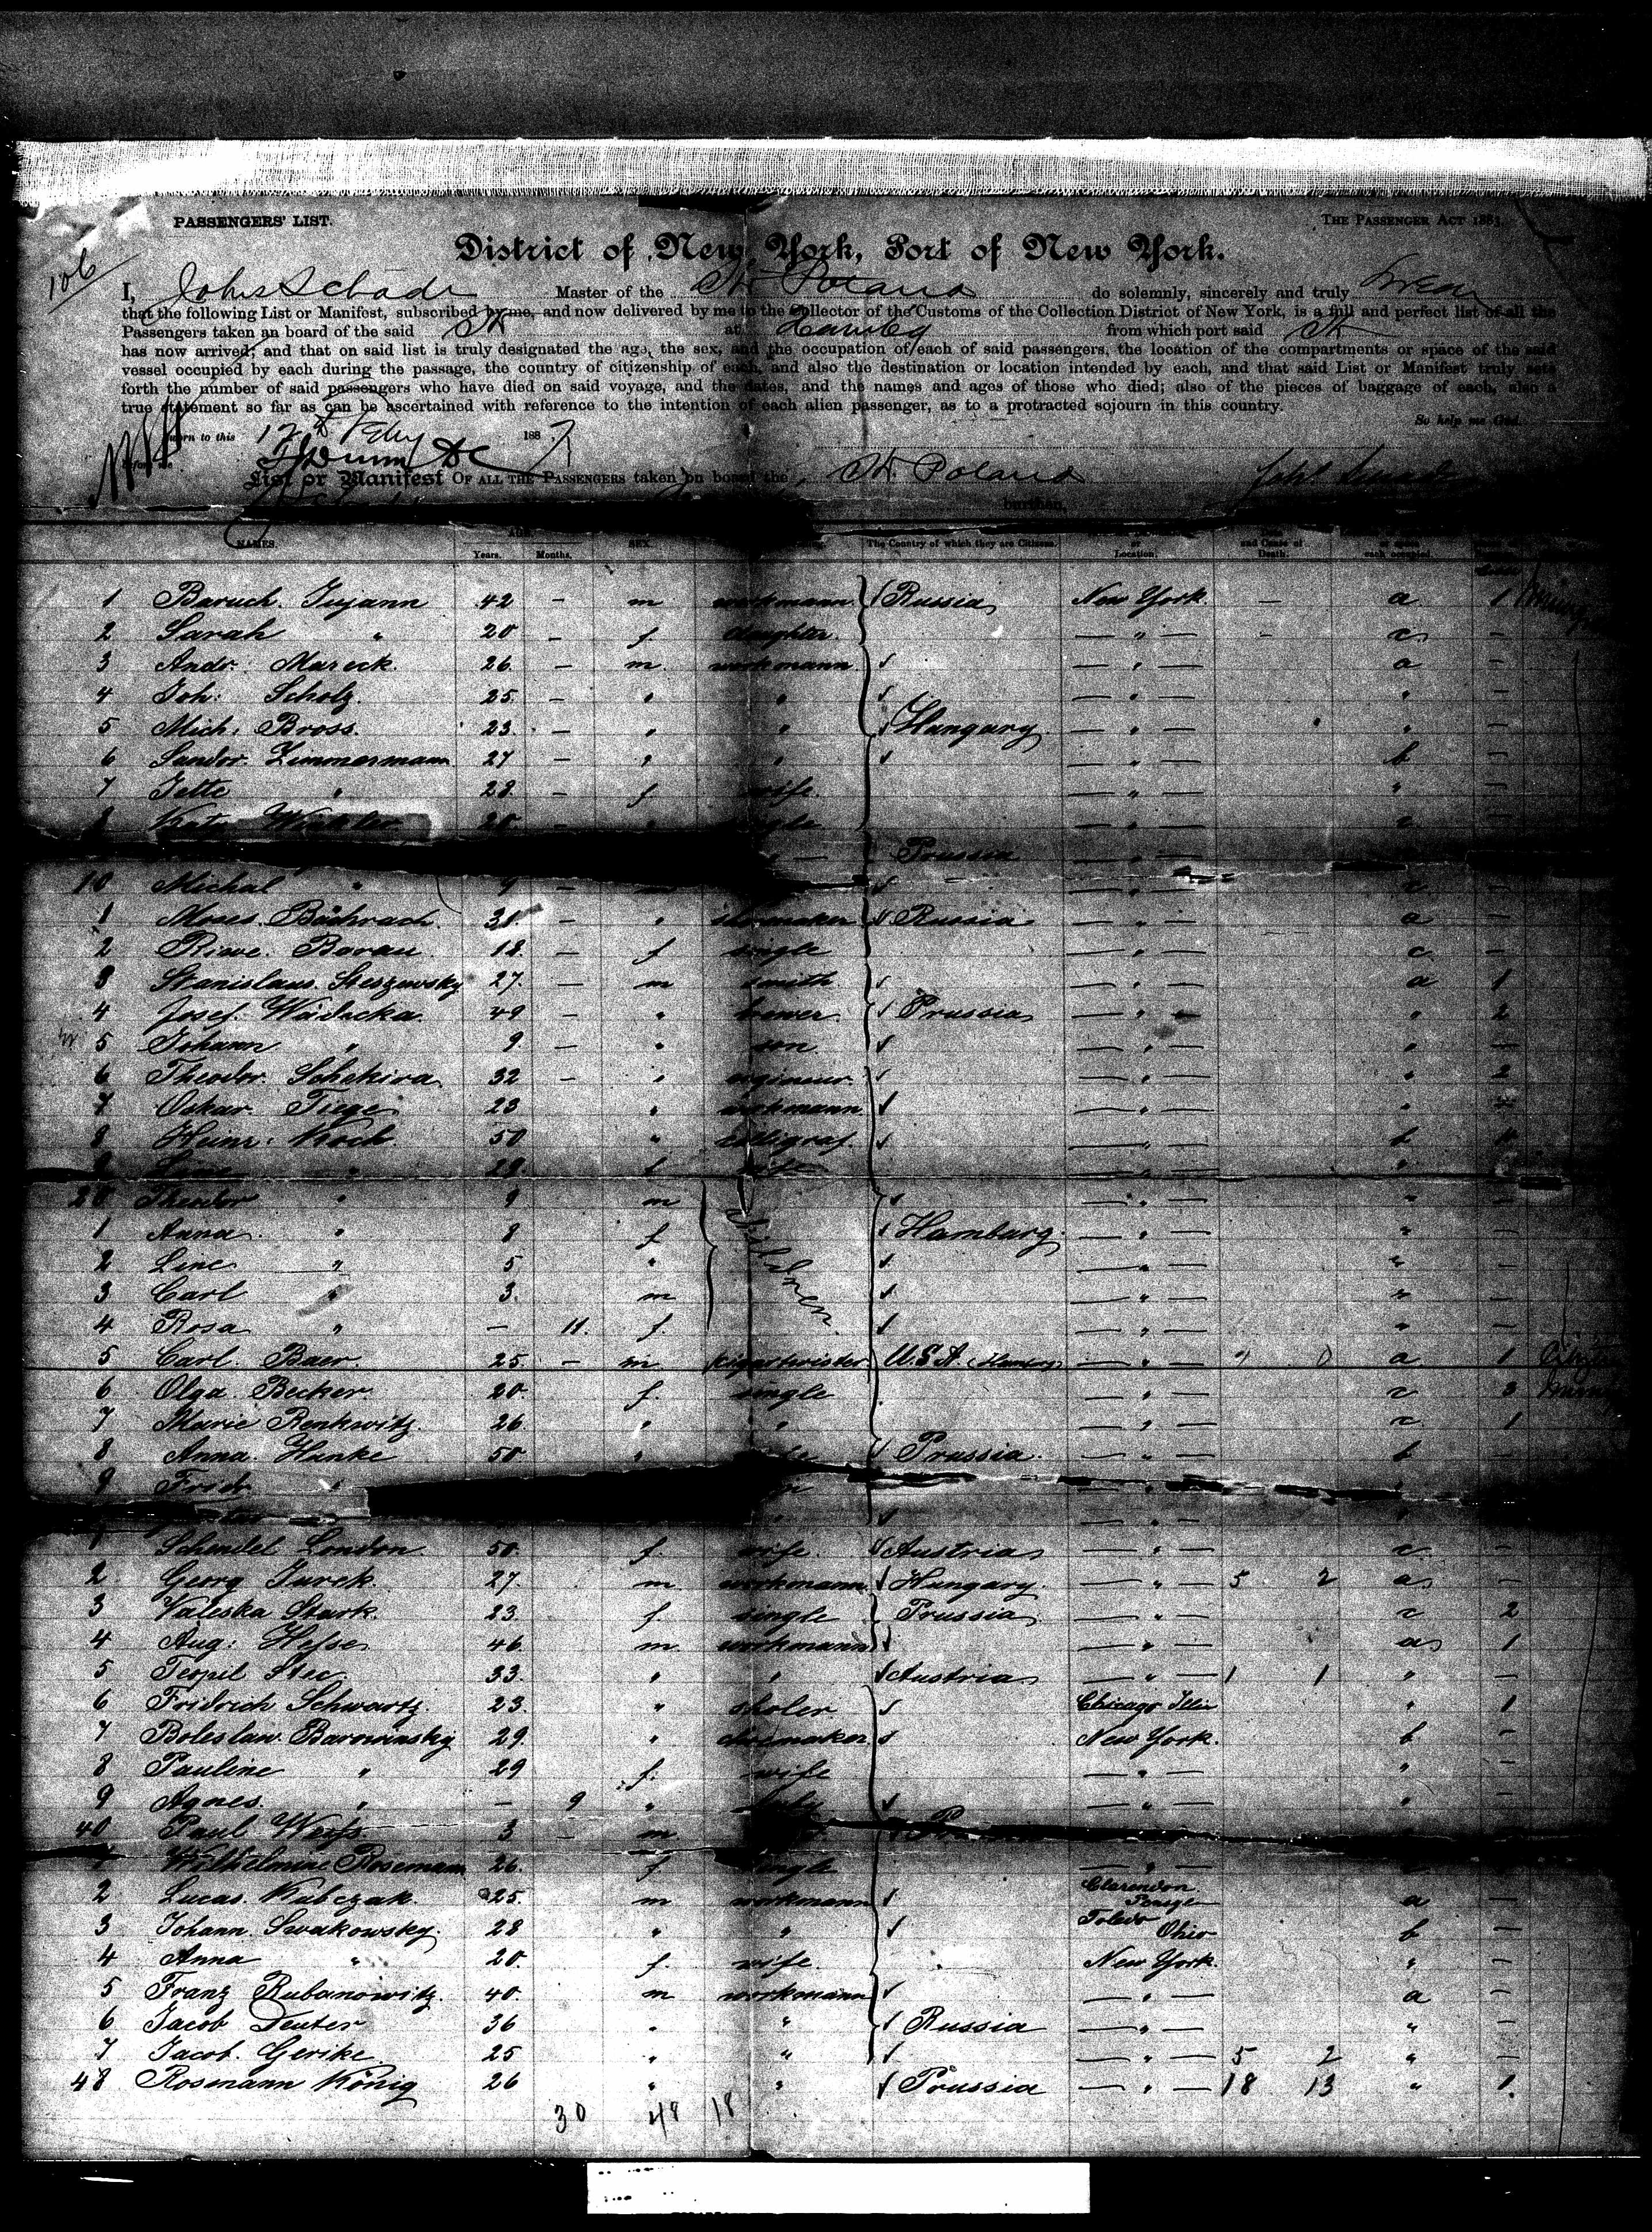 PASSENGERS' LIST. THE PASSENGER ACT 1883.
106
District of New York, Port of New York.
I, John Schade Master of the Str Poland do solemnly, sincerely and truly swear
that the following List or Manifest, subscribed by me, and now delivered by me to the Collector of the Customs of the Collection District of New York, is a full and perfect list of all the
Passengers taken on board of the said Str at Hambg from which port said Str
has now arrived; and that on said list is truly designated the age, the sex, and the occupation of each of said passengers, the location of the compartments or space of the said
vessel occupied by each during the passage, the country of citizenship of each, and also the destination or location intended by each, and that said List or Manifest truly sets
forth the number of said passengers who have died on said voyage, and the dates, and the names and ages of those who died; also of the pieces of baggage of each, also a
true statement so far as can be ascertained with reference to the intention of each alien passenger, as to a protracted sojourn in this country.
So help me God.
Sworn to this 12th Feby 1887
before me
List or Manifest OF ALL THE PASSENGERS taken on board the Str Poland
burthen
NAMES. AGE. Years. Months. SEX. The Country of which they are Citizens. or Location. and Cause of Death. each occupied.
1 Baruch 42 - m workmann Russia New York - a 1
2 Sarah " 20 - f daughter — " — - c -
3 Andr. Mareck 26 - m workmann — " — a -
4 Joh: Scholz 25 - " " — " — " -
5 Mich: Bross 23 - " " Hungary — " — " -
6 Sandor Zimmermann 27 - " " — " — b -
7 Jette " 28 - f wife — " — " -
8 20 - single — " — c -
Prussia — " —
10 Michal " 9 - — " — c -
1 Moses Bachrach 31 - " shomaker Russia — " — a -
2 Riwe Baran 18 - f single — " — c -
3 Stanislaus Steszewsky 27 - m smith — " — a 1
4 Josef Wadecka 49 - " brewer Prussia — " — " 2
5 Johann " 9 - " son — " — " -
6 Theodor Schekira 32 - " — " — " 2
7 Oskar Tiege 23 " workmann — " — "
8 Heinr: Koch 50 " — " — b
9 Line " 28 f wife — " — "
20 Theodor " 9 m children — " — " -
1 Anna " 8 f Hamburg — " — " -
2 Line " 5 " — " — " -
3 Carl " 3 m — " — " -
4 Rosa " - 11 f — " — " -
5 Carl Baer 25 - m U.S.A. — " — a 1
6 Olga Becker 20 f single — " — c 3
7 Marie Renkwitz 26 " " — " — c 1
8 Anna Hanke 50 " Prussia — " — b -
9 Fridr. " — " —
— " —
1 Schendel London 50 f wife Austria — " — c -
2 Georg Turek 27 m workmann Hungary — " — 5 2 a -
3 Valeska Stark 23 f single Prussia — " — c 2
4 Aug: Hesse 46 m workmann — " — a 1
5 Teopil Stec 33 " " Austria — " — 1 1 " -
6 Fridrich Schwartz 23 " sholer Chicago Illin " 1
7 Boleslaw Barowinsky 29 " New York b -
8 Pauline " 29 f wife — " — "
9 Agnes " - 9 " — " — " -
40 Paul Weiss 3 - m
1 Wilhelmine Rosemann 26 f single — " —
2 Lucas Kubczak 25 m workmann Clarendon a -
3 Johann Swakowsky 28 " " Toledo Ohio b -
4 Anna " 20 f wife New York " -
5 Franz Rubanowitz 40 m workmann — " — a -
6 Jacob Deuter 36 " " Russia — " — " -
7 Jacob Gerike 25 " " — " — 5 2 " -
48 Rosmann König 26 " " Prussia — " — 18 13 " 1
30 48 18